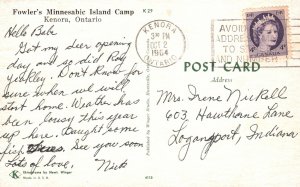 Fowler's Minnesabic Island Camp
Kenora, Ontario
K 29
KENORA
PM
OCT 2
1964
ONTARIO
AVOID
ADDRE
TO S
AND NUMBER
Hello Babe
Got my deer opening
day, and so did Roy
Yeakley. Don't know for
sure when we will
start home. Weather has
been lousy this year
up here. Caught some
fish. See you soon
Lots of love,
Nick
POST CARD
Address
Mrs. Irene Nickell
603 Hawthorne Lane
Logansport, Indiana
K
Ektachrome by Hawk Winger